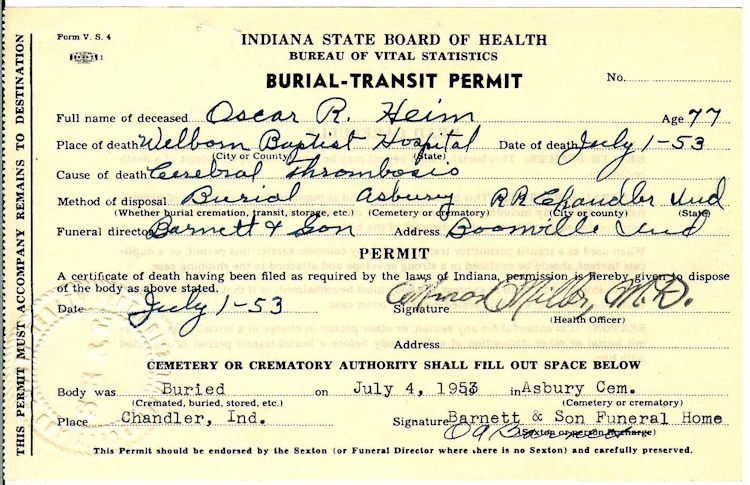 Form V. S. 4
INDIANA STATE BOARD OF HEALTH
BUREAU OF VITAL STATISTICS
BURIAL-TRANSIT PERMIT
No.
Full name of deceased Oscar R. Heim Age 77
Place of death Welborn Baptist Hospital Date of death July 1-53
(City or County) (State)
Cause of death Cerebral Thrombosis
Method of disposal Burial Asbury RR Chandler Ind
(Whether burial cremation, transit, storage, etc.) (Cemetery or crematory) (City or county) (State)
Funeral director Barnett & Son Address Boonville Ind
PERMIT
A certificate of death having been filed as required by the laws of Indiana, permission is hereby given to dispose
of the body as above stated.
Date July 1-53 Signature Miller, M.D.
(Health Officer)
Address
CEMETERY OR CREMATORY AUTHORITY SHALL FILL OUT SPACE BELOW
Body was Buried on July 4, 1953 in Asbury Cem.
(Cremated, buried, stored, etc.) (Cemetery or crematory)
Place Chandler, Ind. Signature Barnett & Son Funeral Home
(Sexton or person in charge)
This Permit should be endorsed by the Sexton (or Funeral Director where there is no Sexton) and carefully preserved.
THIS PERMIT MUST ACCOMPANY REMAINS TO DESTINATION